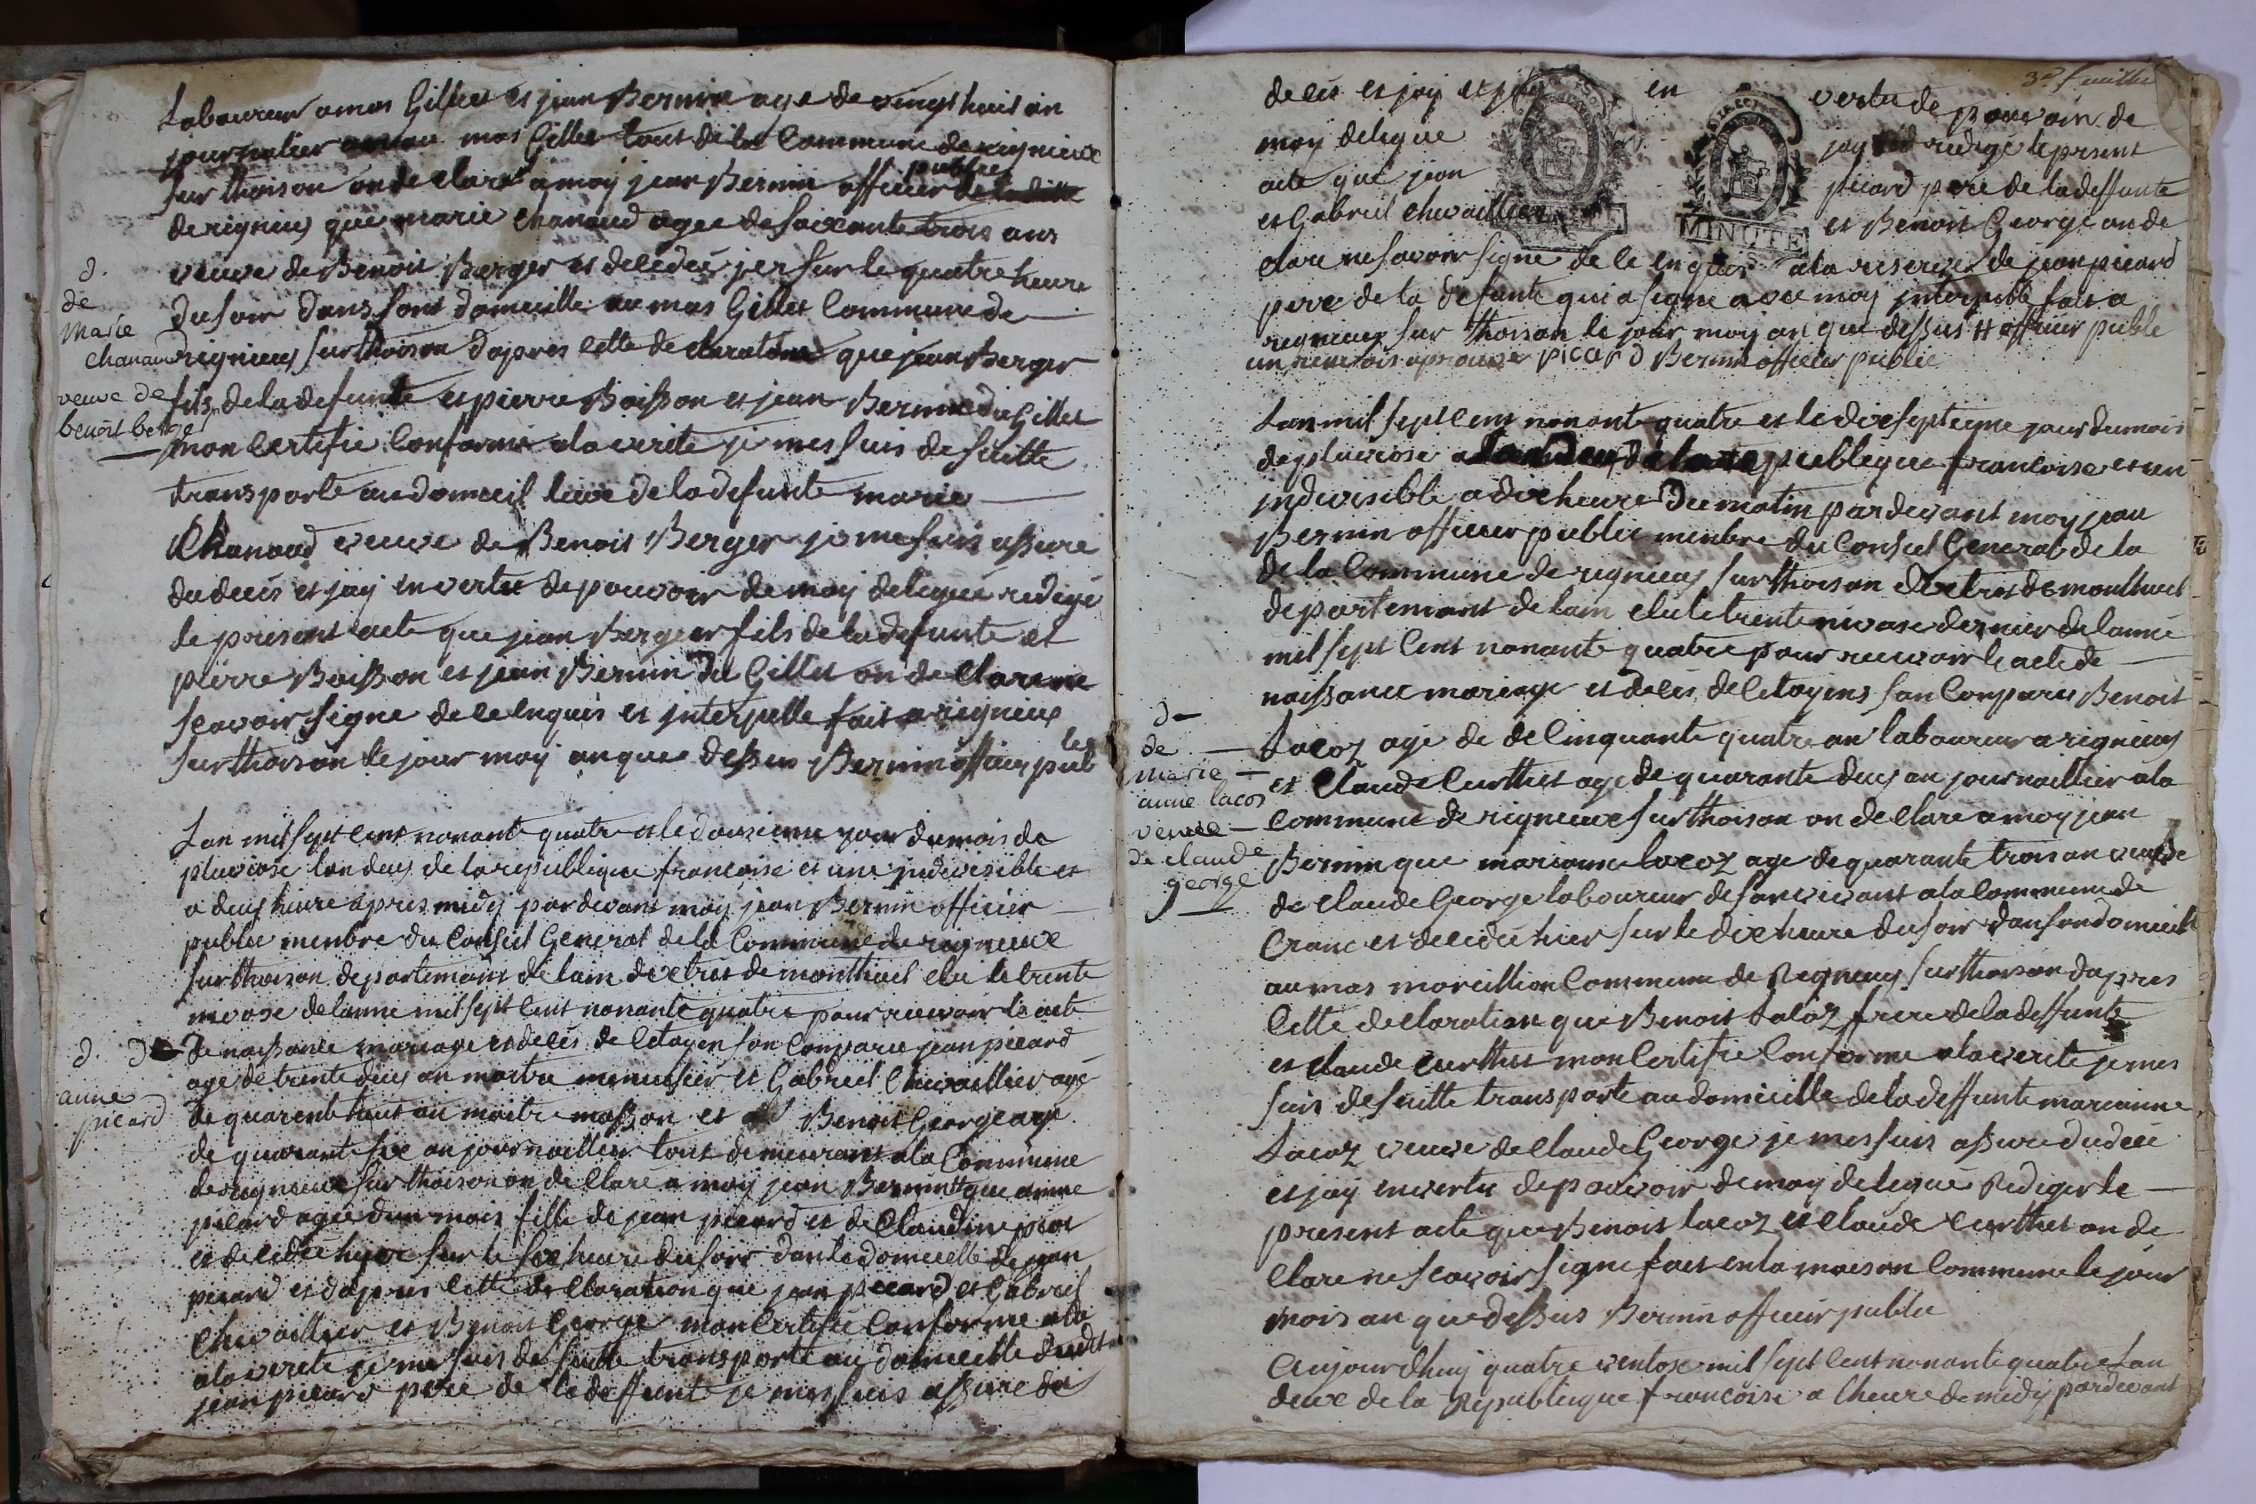 Laboureur a mas Gillet et jean Bernin age de vingt huit an
journalier au mas Gillet tout de la Commune de rignieux
sur thoison on declare a moy jean Bernin officier public
de rignieux que marie chanaud agee de soixante trois ans
veuve de Benoit Berger et decedeé jer sur le quatre heure
du soir dans sont domicille au mas Gillet Commune de
rignieux sur thoison dapres cette declaration que jean Berger
fils de la defunte et pierre Boisson et jean Bernin du Gillet
mon certifie Conforme ala verite je mes suis de suitte
transporte au domicil de la defunte marie
Chanaud veuve de Benoit Berger je me suis assure
du deces et jay en vertu de pouvoir de moy delegué redige
le present acte que jean Berger fils de la defunte et
pierre Boisson et jean Bernin du Gillet on declare ne
scavoir signe de ce enquis et interpelle fait a rignieux
sur thoison le jour moy an que dessus Bernin officier public
d.
de
Marie
chanaud
veuve de
benoit berger
Lan mil sept cent nonante quatre et le douzieme jour du mois de
pluviose lan deux de la republique francoise et une indivisible et
a deux heure apres midy par devant moy jean Bernin officier
public menbre du Conseil General de la Commune de rignieux
sur thoison departemant de lain dixtrit de montluel elu le trente
nivose de lanne mil sept cent nonante quatre pour recevoir le acte
de naissance mariage et deces de Citoyen son Comparu jean picard
age de trente deux an maitre menusier et Gabriel Chevaillier age
de quarente huit an maitre masson et Benoit George age
de quarante six an journaillier tout demeurant ala Commune
de rignieux sur thoison on declare a moy jean Bernin que anne
picard agee dun mois fille de jean picard et de Claudine
et decedeé hyer sur le six heure du soir dan le domicille de jean
picard et dapres cette declaration que jean picard et Gabriel
Chevaillier et Benoit George mon Certifié Conforme ala
ala verité je me suis de suitte transporté au domicille dudt
jean picard pere de la deffunte je mes suis assure du
d. de
anne
picard
3e feuillet
deces et jay en vertu de pouvoir de
moy delegue jay redigé le present
acte que jean picard pere de la deffunte
et Gabriel chevaillier et Benoit George on de
MINUTE
clare ne savoir signe de ce enquis ala reserve de jean picard
pere de la defunte qui a signe avec moy interpellé fait a
rignieux sur thoison le jour moy an que dessus officier public
un renvois aprouve picard Bernin officier public
Lan mil sept cent nonante quatre et le dix septieme jour du mois
de pluviose lan deux de la republique francoise et un
indivisible a dix heure du matin par devant moy jean
Bernin officier public menbre du Conseil General de la
de la Commune de rignieux sur thoison dixtrit de montluel
departemant de lain elu le trente nivose dernier de lanné
mil sept cent nonante quatre pour recevoir le acte de
naissance mariage et deces de Citoyens son Comparu Benoit
Lacoz age de de Cinquante quatre an laboureur a rignieux
et Claude Curthet age de quarante deux an journaillier ala
Commune de rignieux sur thoison on declare a moy jean
Bernin que marianne lacoz age de quarante trois an veuve
de claude George laboureur de son vivant ala Commune de
Crane et decedeé hier sur le dix heure du soir dan son domicill
au mas moreillion Commune de Rignieux sur thoison dapres
Cette declaration que Benoit Lacoz frere de la deffunte
et claude Curthet mon Certifie Conforme ala verite je mes
suis de suitte transporte au domicille de la deffunte marianne
Lacoz veuve de claude George je mes suis assure du decé
et jay en vertu de pouvoir de moy delegué Rediger le
present acte que Benoit lacoz et claude curthet on de
clare ne scavoir signe fait en la maison Commune le jour
mois an que dessus Bernin officier public
d
de
marie
anne lacoz
veuve
de claude
george
Aujourdhuy quatre ventose mil sept cent nonante quatre Lan
deux de la Republique francoise a lheure de midy pardevant